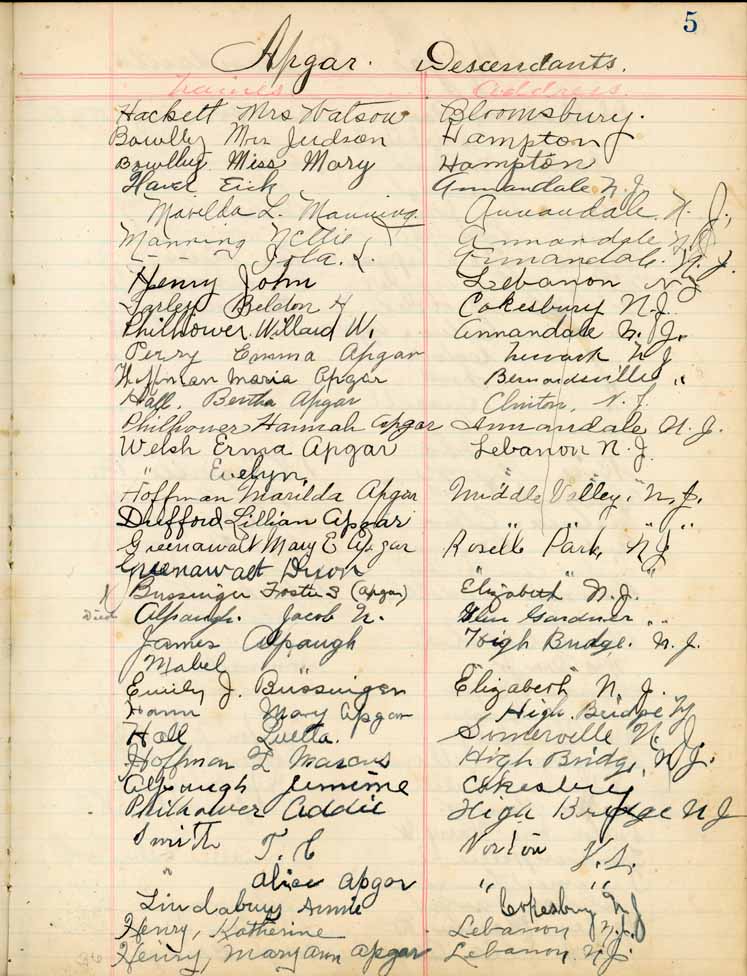 5
Apgar. Descendants.
Names Address
Hackett Mrs Watson Bloomsbury.
Bowlby Mrs Judson Hampton
Bowlby Miss Mary Hampton
Haver Eick Annandale N.J.
Matilda L. Manning. Annandale, N. J.,
Manning Nettie Annandale N.J.
" Iola. L. Annandale. N. J.
Henry John Lebanon N.J.
Farley Beldon H Cokesbury N.J.
Philhower Willard W. Annandale N. J.
Perry Emma Apgar Newark N J
Hoffman Maria Apgar Bernardsville "
Hall, Bertha Apgar Clinton, N. J.
Philhower Hannah Apgar Annandale N. J.
Welsh Erma Apgar Lebanon N. J.
" Evelyn, " "
Hoffman Marilda Apgar Middle Valley. N. J.
Dufford, Lillian Apgar " " "
Greenawalt Mary E Apgar Roselle Park, N J
Greenawalt Dixon " "
Bussinger Foster S (Apgar) Elizabeth N. J.
Died Alpaugh. Jacob N. Glen Gardner "
James Alpaugh High Bridge. N. J.
Mabel " "
Emily J. Bussinger Elizabeth N. J.
Hann Mary Apgar High Bridge NJ
Hall Luetta. Somerville N. J.
Hoffman L Marcus High Bridge, N. J.
Alpaugh Jemime Cokesbury
Philhower Addie High Bridge N J
Smith T. C Norton N. J.
" Alice Apgar " "
Lindabury Annie Cokesbury N J
Henry, Katherine Lebanon N. J.
Henry, Mary Ann Apgar Lebanon N. J.